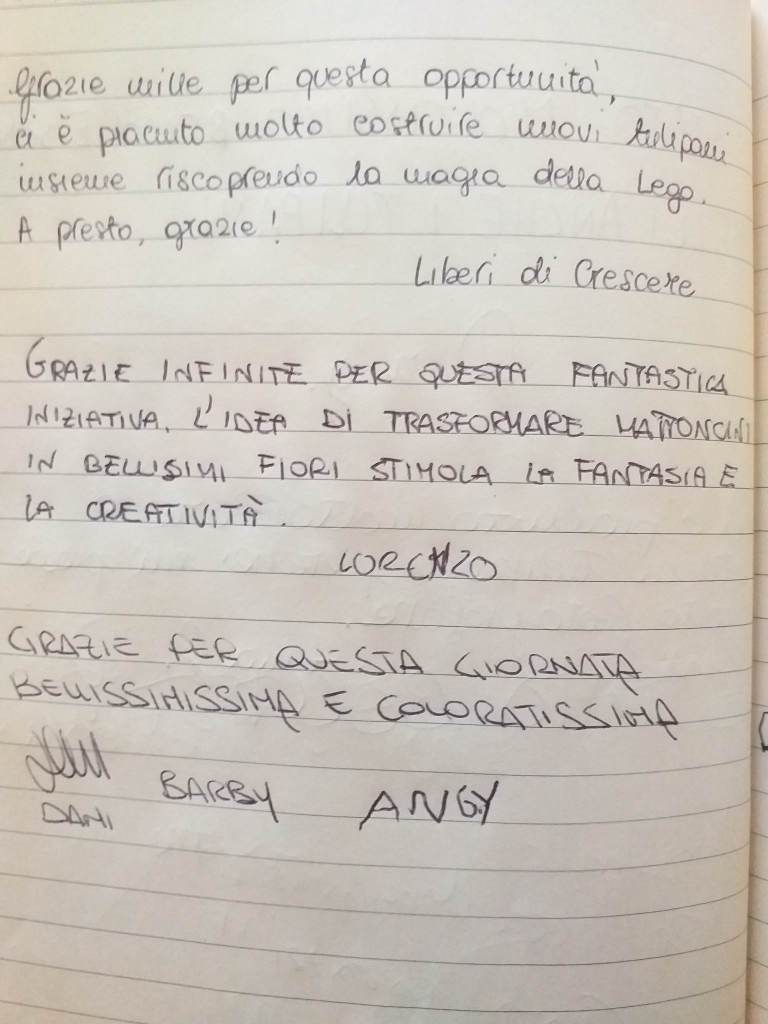 Grazie mille per questa opportunità,
ci è piaciuto molto costruire nuovi tulipani
insieme riscoprendo la magia della Lego.
A presto, grazie!
Liberi di Crescere
GRAZIE INFINITE PER QUESTA FANTASTICA
INIZIATIVA. L'IDEA DI TRASFORMARE MATTONCINI
IN BELLISIMI FIORI STIMOLA LA FANTASIA E
LA CREATIVITÀ.
LORENZO
GRAZIE PER QUESTA GIORNATA
BELLISSIMISSIMA E COLORATISSIMA
DAMI BARBY ANGY